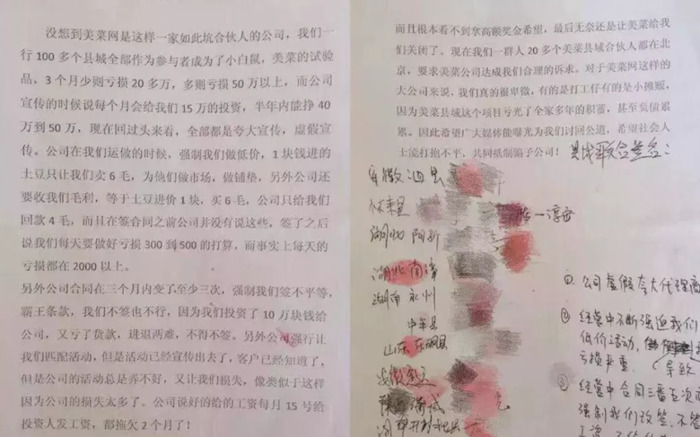 没想到美菜网是这样一家如此坑合伙人的公司，我们一
行 100 多个县城全部作为参与者成为了小白鼠，美菜的试验
品，3 个月少则亏损 20 多万，多则亏损 50 万以上，而公司
宣传的时候说每个月会给我们 15 万的投资，半年内能挣 40
万到 50 万，现在回过头来看，全部都是夸大宣传，虚假宣
传。公司在我们运做的时候，强制我们做低价，1 块钱进的
土豆只让我们卖 6 毛，为他们做市场，做铺垫，另外公司还
要收我们毛利，等于土豆进价 1 块，买 6 毛，公司只给我们
回款 4 毛，而且在签合同之前公司并没有说这些，签了之后
说我们每天要做好亏损 300 到 500 的打算，而事实上每天的
亏损都在 2000 以上。
另外公司合同在三个月内变了至少三次，强制我们签不平等，
霸王条款，我们不签也不行，因为我们投资了 10 万块钱给
公司，又亏了货款，进退两难，不得不签。另外公司强行让
我们匹配活动，但是活动已经宣传出去了，客户已经知道了，
但是公司的活动总是弄不好，又让我们损失，像类似于这样
因为公司的损失太多了。公司说好的给的工资每月 15 号给
投资人发工资，都拖欠 2 个月了！
而且根本看不到拿高额奖金希望，最后无奈还是让美菜给我
们关闭了。现在我们一群人 20 多个美菜县城合伙人都在北
京，要求美菜公司达成我们合理的诉求。对于美菜网这样的
大公司来说，我们真的很卑微，有的是打工仔有的是小摊贩，
因为美菜县域这个项目亏光了全家多年的积蓄，甚至负债累
累。因此希望广大媒体能曝光为我们讨回公道，希望社会人
士流打抱不平，共同抵制骗子公司！
联合签名：
安徽 泗县
湖北
湖北
湖南 永州
中牟县
山东 东明县
① 公司虚假夸大代理商
② 经营中不断强迫我们
低价活动，
亏损严重
③ 经营中合同三番五次
强制我们改签，不签